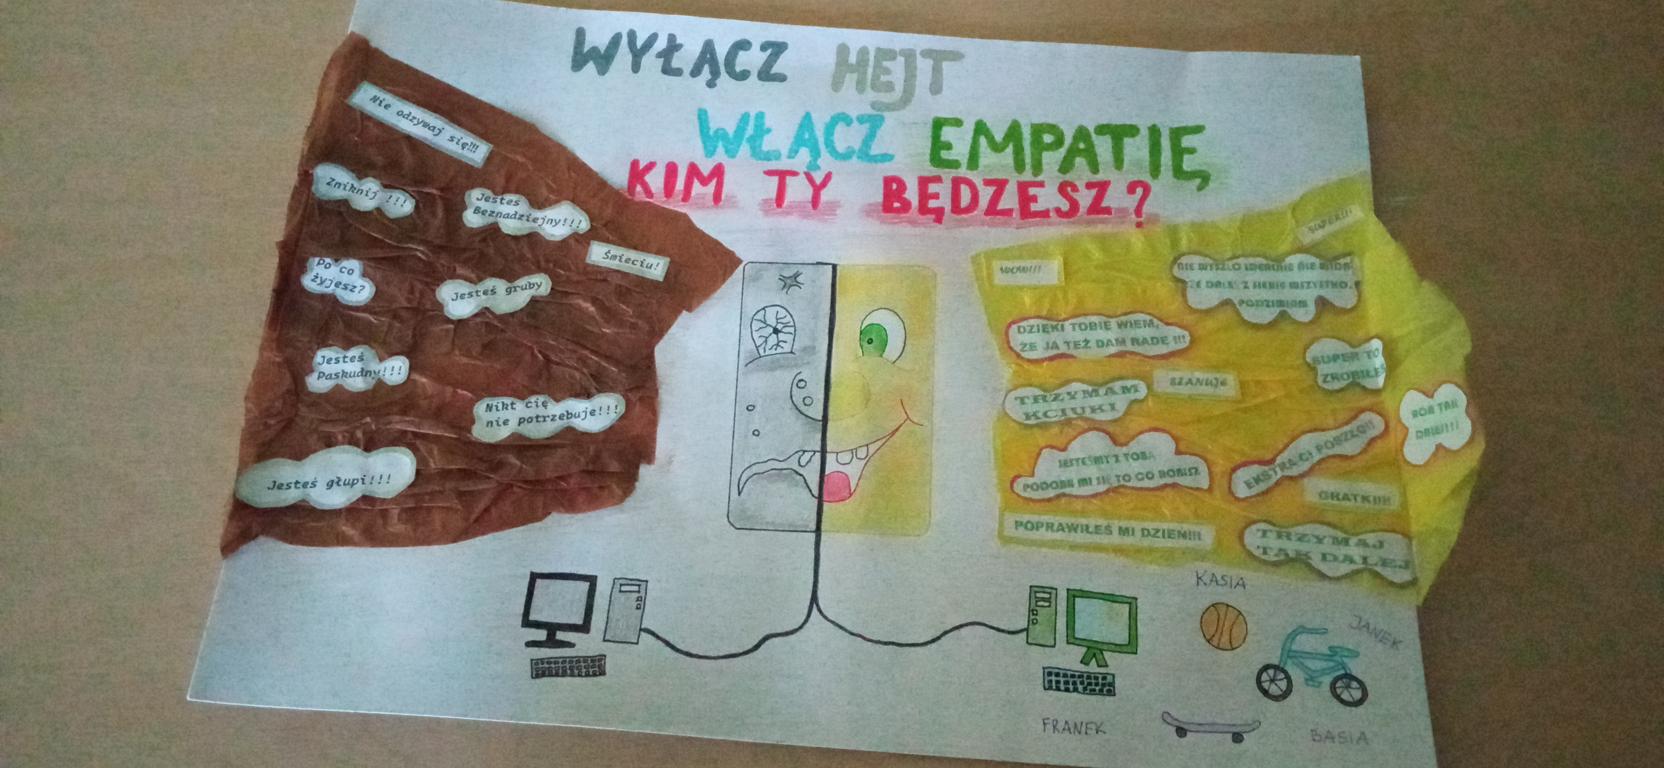 WYŁĄCZ HEJT
WŁĄCZ EMPATIĘ
KIM TY BĘDZESZ?
Nie odzywaj się!!!
Zniknij !!!
Jesteś
Beznadziejny!!!
Śmieciu!
Po co
żyjesz?
Jesteś gruby
Jesteś
Paskudny!!!
Nikt cię
nie potrzebuje!!!
Jesteś głupi!!!
SUPER!!!
WOW!!!
NIE WYSZŁO IDEALNIE ALE
DAŁEŚ Z SIEBIE WSZYSTKO.
PODZIWIAM
DZIĘKI TOBIE WIEM,
ŻE JA TEŻ DAM RADĘ !!!
SUPER TO
ZROBIŁEŚ
SZANUJĘ
TRZYMAM
KCIUKI
RÓB TAK
DALEJ!!!
EKSTRA CI POSZŁO!!
JESTEŚMY Z TOBĄ
PODOBA MI SIĘ TO CO ROBISZ
GRATKI!!!
POPRAWIŁEŚ MI DZIEŃ!!!
TRZYMAJ
TAK DALEJ
KASIA
JANEK
FRANEK
BASIA